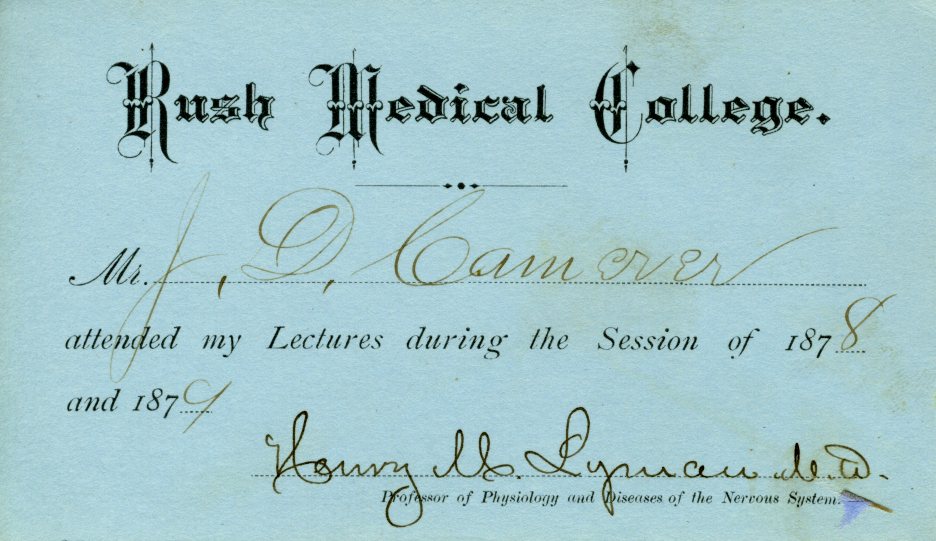 Rush Medical College.
Mr. J. D. Camerer
attended my Lectures during the Session of 1878
and 1879
Henry M. Lyman M.D.
Professor of Physiology and Diseases of the Nervous System.